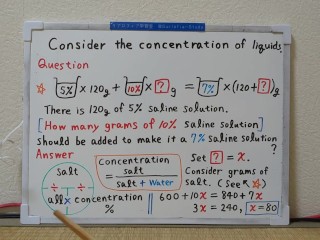 Consider the concentration of liquids.
Question
☆ 5% × 120g + 10% × ? g = 7% × (120+?)g
There is 120g of 5% saline solution.
[How many grams of 10% saline solution]
should be added to make it a 7% saline solution?
Answer
salt
÷ ÷
all × concentration
%
Concentration
= salt / salt + water
Set ? = x.
Consider grams of
salt. (See ☆)
600 + 10x = 840 + 7x
3x = 240, x = 80